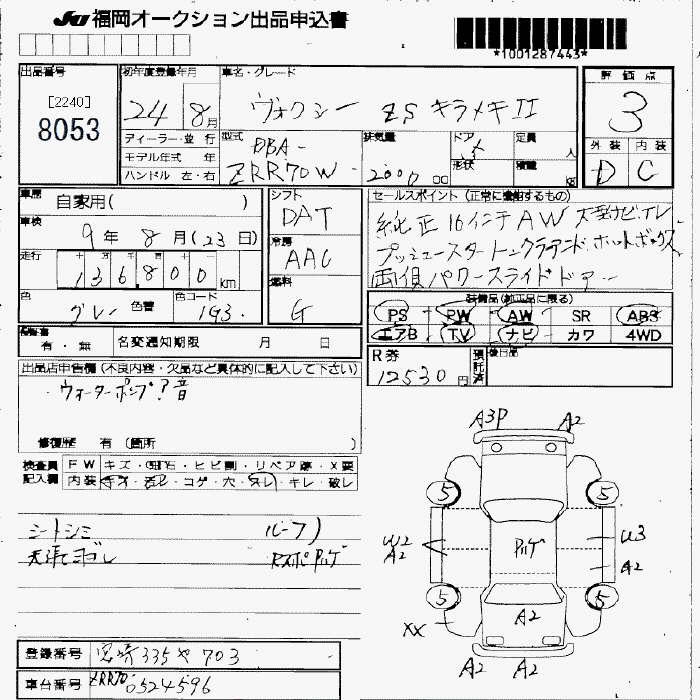 JU 福岡オークション出品申込書
*1001287443*
出品番号 初年度登録年月 車名・グレード 評価点
[2240]
8053
24 8月 ヴォクシー ZS キラメキII 3
ディーラー・並行 型式 排気量 ドア 定員 人 外装 内装
モデル年式 年 DBA- 形状 積載 kg
ハンドル 左・右 ZRR70W 2000 cc 5 D C
車歴 自家用( ) シフト DAT セールスポイント (正常に運動するもの)
車検 9年 8月 (23日) 冷房 AAC 純正16インチAW 大型ナビ.TV
プッシュスタートン ホットボックス
走行 136,800 km 燃料 G 両側パワースライドドアー
色 グレー 色替 色コード 1G3.
装備品(純正品に限る)
PS PW AW SR ABS
エアB TV ナビ カワ 4WD
保証書 有・無 名変通知期限 月 日
R券 12530円 預託済 後日品
出品店申告欄 (不良内容・欠品など具体的に記入して下さい)
ウォーターポンプ?音
修復歴 有 (箇所 )
検査員 FW キズ・飛石・ヒビ割・リペア跡・X要
記入欄 内装 キズ・汚レ・コゲ・穴・スレ・キレ・破レ
シートシミ ルーフ)
天張ヨゴレ
A3P A2
5 5
W2 A2 U3
A2
5 5
XX A2
A2 A2
登録番号 宮崎 335 や 703
車台番号 ZRR70-0524596